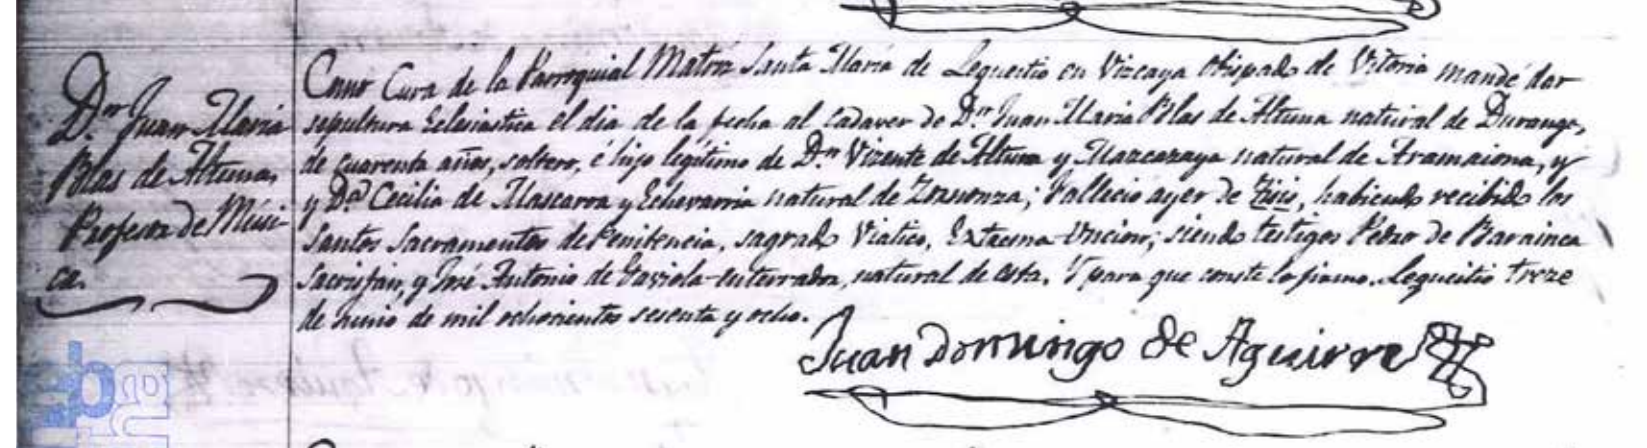 Dn. Juan Maria
Blas de Altuna,
Profesor de Músi-
ca.
Como Cura de la Parroquial Matriz Santa Maria de Lequeitio en Vizcaya Obispado de Vitoria mandé dar
sepultura Eclesiastica el dia de la fecha al cadaver de Dn. Juan Maria Blas de Altuna natural de Durango,
de cuarenta años, soltero, é hijo legítimo de Dn. Vizente de Altuna y Mazcazaya natural de Aramaiona, y
y Da. Cecilia de Mascaroa y Echevarria natural de Zornonza; falleció ayer de tisis, habiendo recibido los
Santos Sacramentos de Penitencia, sagrado Viatico, Extrema-Uncion; siendo testigos Pedro de Barainca
Sacristan, y José Antonio de Gaviola-enterrador, natural de esta. Y para que conste lo firmo. Lequeitio treze
de Junio de mil ochocientos sesenta y ocho.
Juan Domingo de Aguirre